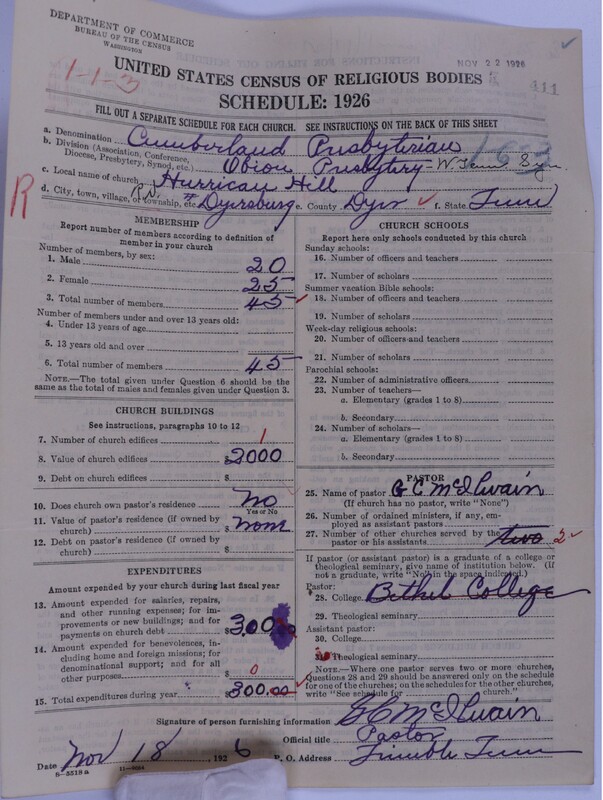 DEPARTMENT OF COMMERCE
BUREAU OF THE CENSUS
WASHINGTON
NOV 22 1926
1-1-3
411
UNITED STATES CENSUS OF RELIGIOUS BODIES
SCHEDULE: 1926
FILL OUT A SEPARATE SCHEDULE FOR EACH CHURCH. SEE INSTRUCTIONS ON THE BACK OF THIS SHEET
a. Denomination Cumberland Presbyterian
b. Division (Association, Conference, Diocese, Presbytery, Synod, etc.) Obion Presbytery - W Tenn Syn
c. Local name of church Hurrican Hill
R
d. City, town, village, or township, etc. Dyersburg e. County Dyer f. State Tenn
MEMBERSHIP
Report number of members according to definition of
member in your church
Number of members, by sex:
1. Male 20
2. Female 25
3. Total number of members 45
Number of members under and over 13 years old:
4. Under 13 years of age
5. 13 years old and over
6. Total number of members 45
NOTE.—The total given under Question 6 should be
same as the total of males and females given under Question 3.
CHURCH BUILDINGS
See instructions, paragraphs 10 to 12
7. Number of church edifices 1
8. Value of church edifices $2000
9. Debt on church edifices $
10. Does church own pastor's residence No
Yes or No
11. Value of pastor's residence (if owned by
church) $ none
12. Debt on pastor's residence (if owned by
church) $
EXPENDITURES
Amount expended by your church during last fiscal year
13. Amount expended for salaries, repairs,
and other running expenses; for im-
provements or new buildings; and for
payments on church debt $300
14. Amount expended for benevolences, in-
cluding home and foreign missions; for
denominational support; and for all
other purposes $ 0
15. Total expenditures during year $300.00
CHURCH SCHOOLS
Report here only schools conducted by this church
Sunday schools:
16. Number of officers and teachers
17. Number of scholars
Summer vacation Bible schools:
18. Number of officers and teachers
19. Number of scholars
Week-day religious schools:
20. Number of officers and teachers
21. Number of scholars
Parochial schools:
22. Number of administrative officers
23. Number of teachers—
a. Elementary (grades 1 to 8)
b. Secondary
24. Number of scholars—
a. Elementary (grades 1 to 8)
b. Secondary
PASTOR
25. Name of pastor G C McIlwain
(If church has no pastor, write "None")
26. Number of ordained ministers, if any, em-
ployed as assistant pastors
27. Number of other churches served by the
pastor or his assistants two 2
If pastor (or assistant pastor) is a graduate of a college or
theological seminary, give name of institution below. (If
not a graduate, write "No" in the space indicated.)
Pastor:
28. College Bethel College
29. Theological seminary
Assistant pastor:
30. College
31. Theological seminary
NOTE.—Where one pastor serves two or more churches,
Questions 28 and 29 should be answered only on the schedule
for one of the churches; on the schedules for the other churches,
write "See schedule for church."
Signature of person furnishing information G C McIlwain
Official title Pastor
Date Nov 18 1926 P. O. Address Trimble Tenn
8-5518a